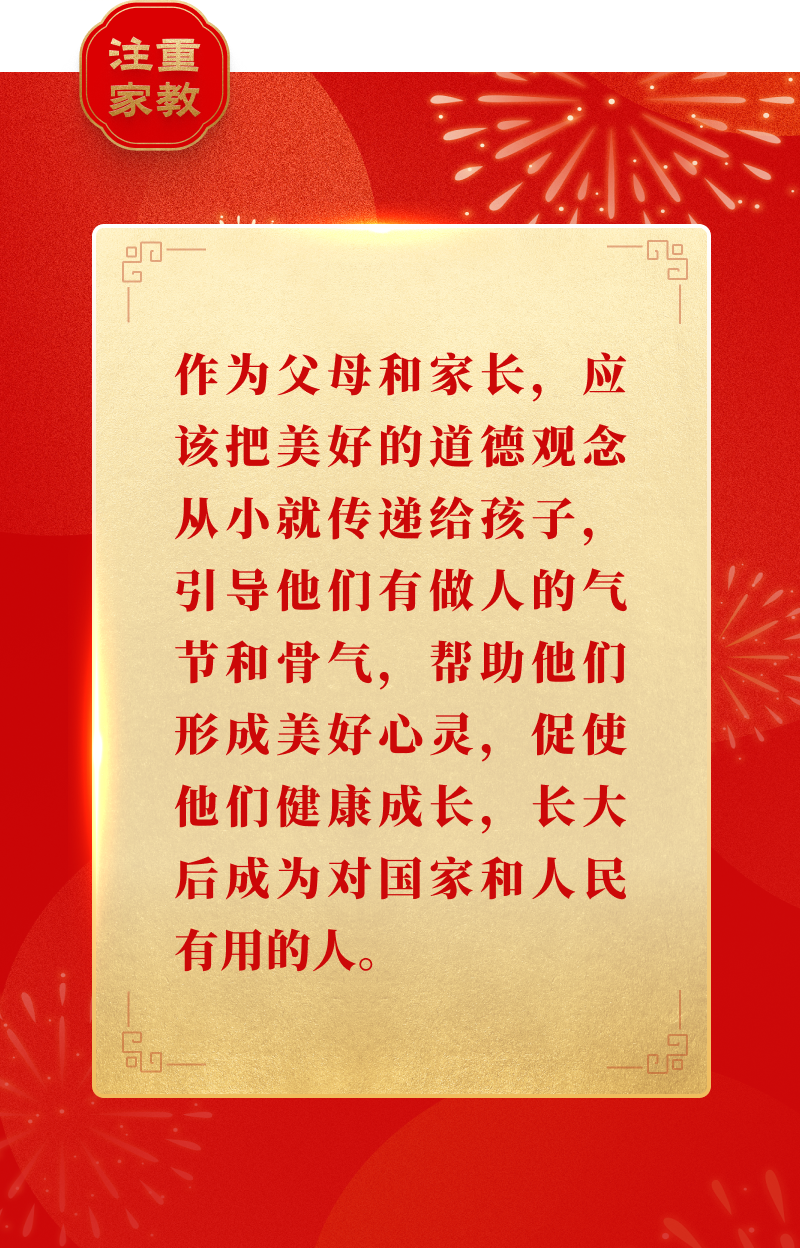 注重
家教
作为父母和家长，应
该把美好的道德观念
从小就传递给孩子，
引导他们有做人的气
节和骨气，帮助他们
形成美好心灵，促使
他们健康成长，长大
后成为对国家和人民
有用的人。